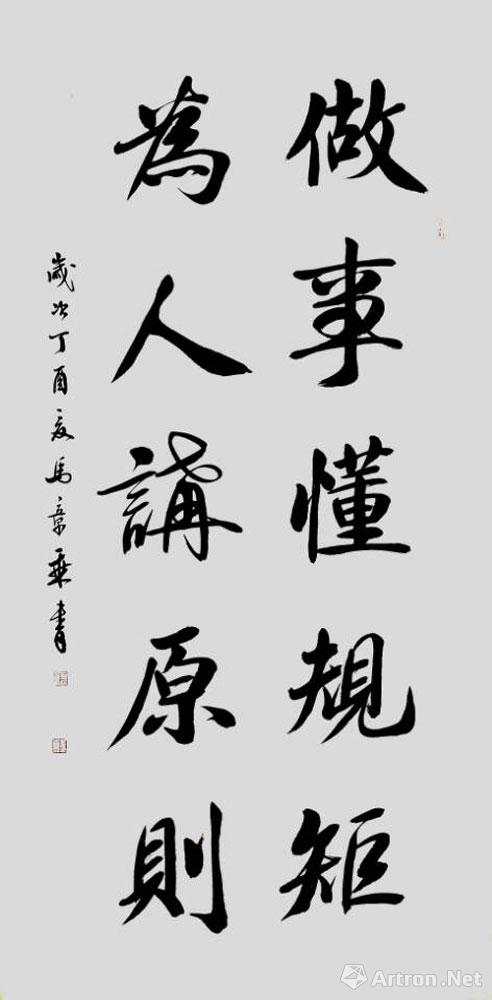 做事懂規矩
為人講原則
歲次丁酉夏馬章乘書
Artron.Net